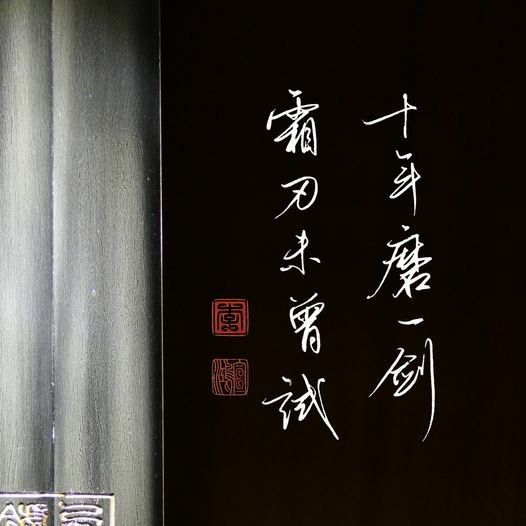 十年磨一剑
霜刃未曾試